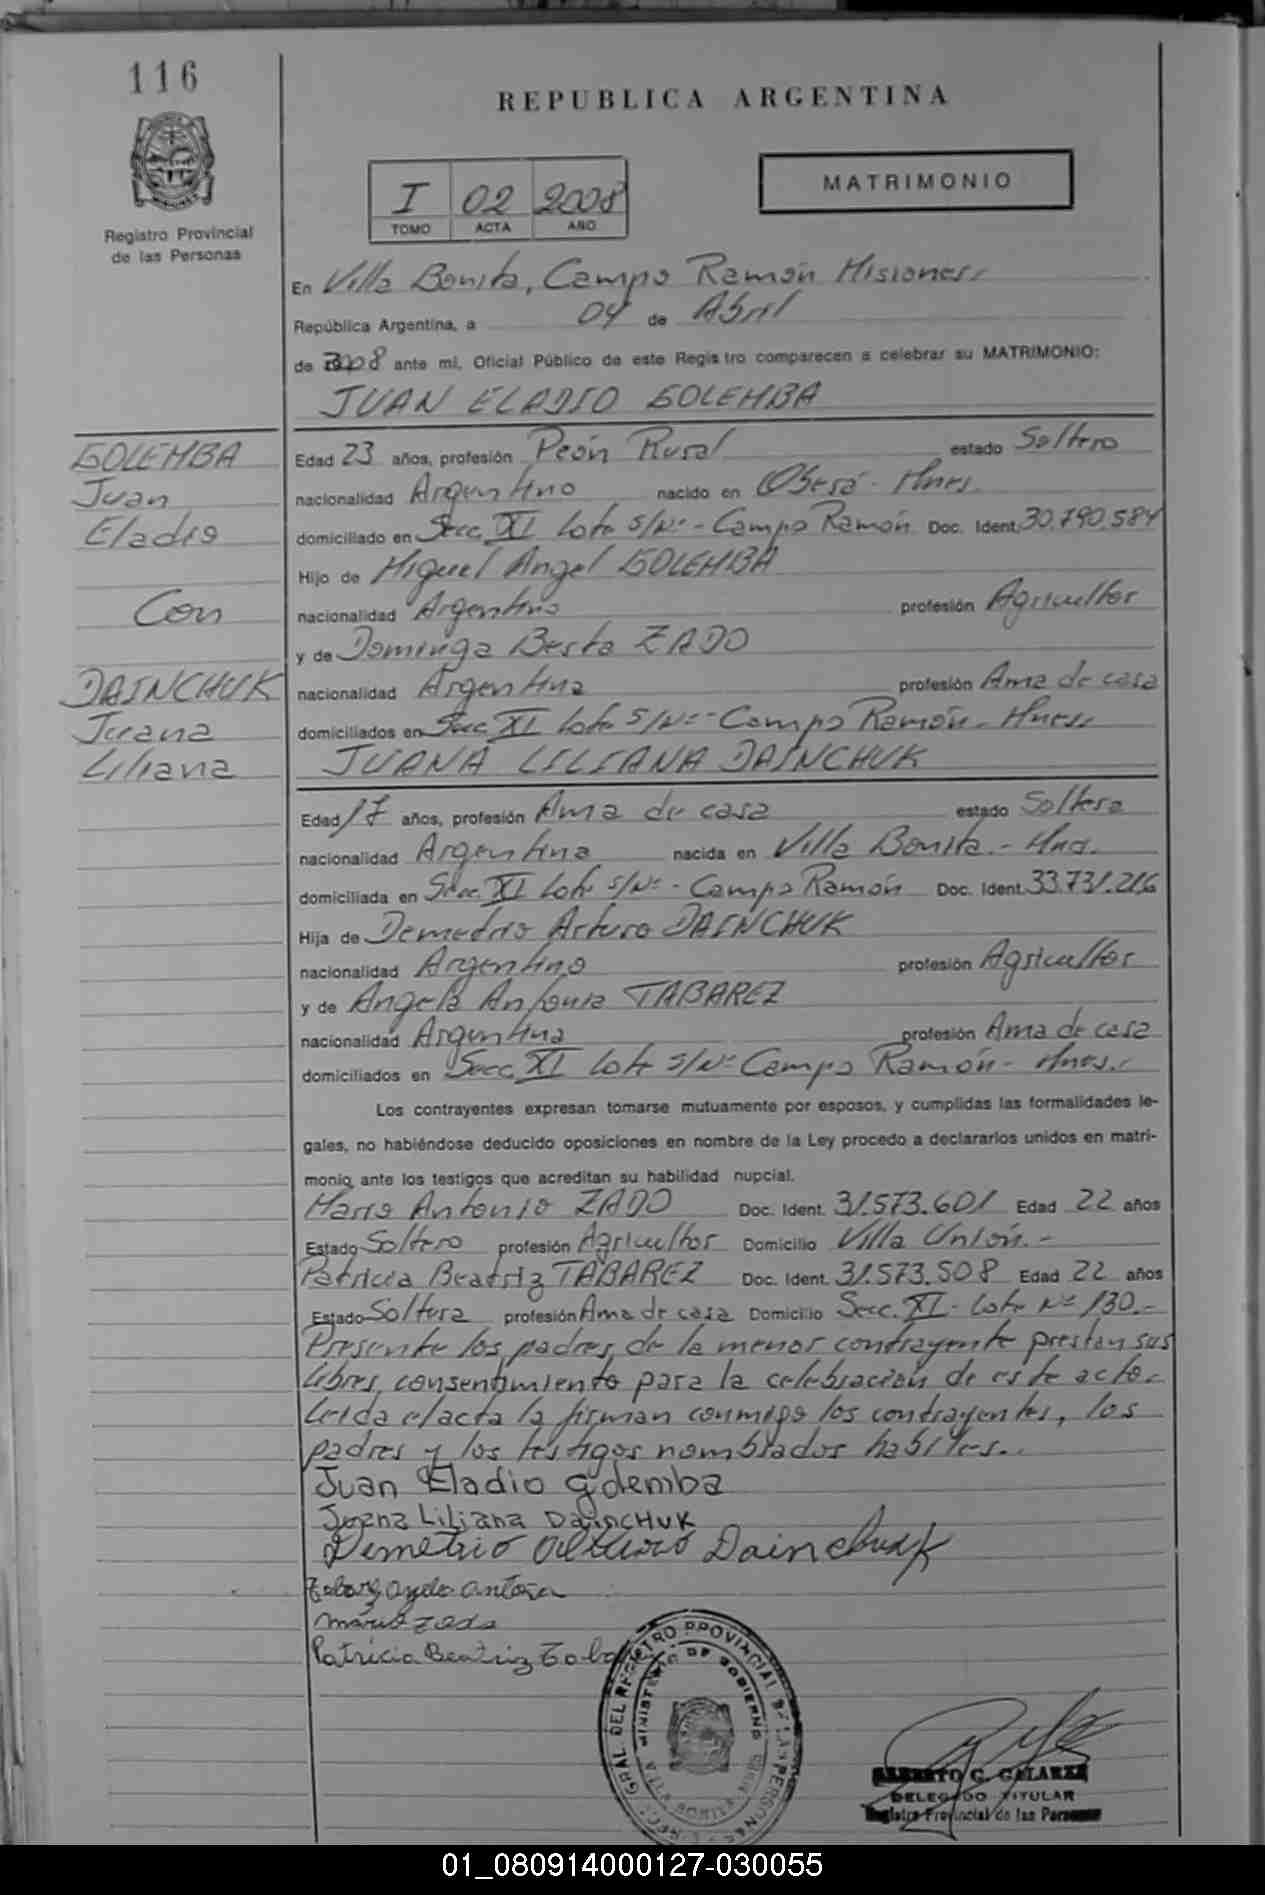 116
REPUBLICA ARGENTINA
I 02 2008
TOMO ACTA AÑO
MATRIMONIO
Registro Provincial
de las Personas
En Villa Bonita, Campo Ramón Misiones
República Argentina, a 04 de Abril
de 2008 ante mi, Oficial Público de este Registro comparecen a celebrar su MATRIMONIO:
JUAN ELADIO GOLEMBA
GOLEMBA
Juan
Eladio
Con
DAINCHUK
Juana
Liliana
Edad 23 años, profesión Peón Rural estado Soltero
nacionalidad Argentino nacido en Oberá - Mnes.
domiciliado en Secc. XI Lote S/Nº - Campo Ramón Doc. Ident. 30.790.584
Hijo de Miguel Angel GOLEMBA
nacionalidad Argentino profesión Agricultor
y de Dominga Berta ZADO
nacionalidad Argentina profesión Ama de casa
domiciliados en Secc. XI Lote S/Nº - Campo Ramón - Mnes.
JUANA LILIANA DAINCHUK
Edad 17 años, profesión Ama de casa estado Soltera
nacionalidad Argentina nacida en Villa Bonita.- Mns.
domiciliada en Secc. XI Lote S/Nº - Campo Ramón Doc. Ident. 33.731.216
Hija de Demetrio Arturo DAINCHUK
nacionalidad Argentino profesión Agricultor
y de Angela Antonia TABAREZ
nacionalidad Argentina profesión Ama de casa
domiciliados en Secc. XI Lote S/Nº Campo Ramón - Mnes.
Los contrayentes expresan tomarse mutuamente por esposos, y cumplidas las formalidades le-
gales, no habiéndose deducido oposiciones en nombre de la Ley procedo a declararlos unidos en matri-
monio ante los testigos que acreditan su habilidad nupcial.
Mario Antonio ZADO Doc. Ident. 31.573.601 Edad 22 años
Estado Soltero profesión Agricultor Domicilio Villa Unión.-
Patricia Beatriz TABAREZ Doc. Ident. 31.573.508 Edad 22 años
Estado Soltera profesión Ama de casa Domicilio Secc. XI - Lote Nº 130.-
Presente los padres de la menor contrayente prestan sus
libres consentimiento para la celebración de este acto.
Leida el acta la firman conmigo los contrayentes, los
padres y los testigos nombrados habiles.-
Juan Eladio golemba
Juana Liliana DaiNCHUK
Demetrio Arturo Dainchuk
Antonia
Mario Zado
Patricia Beatriz
GRAL. DEL REGISTRO PROVINCIAL DE LAS PERSONAS
MINISTERIO DE GOBIERNO
G. GALARZA
DELEGADO TITULAR
Registro Provincial de las Personas
01_080914000127-030055